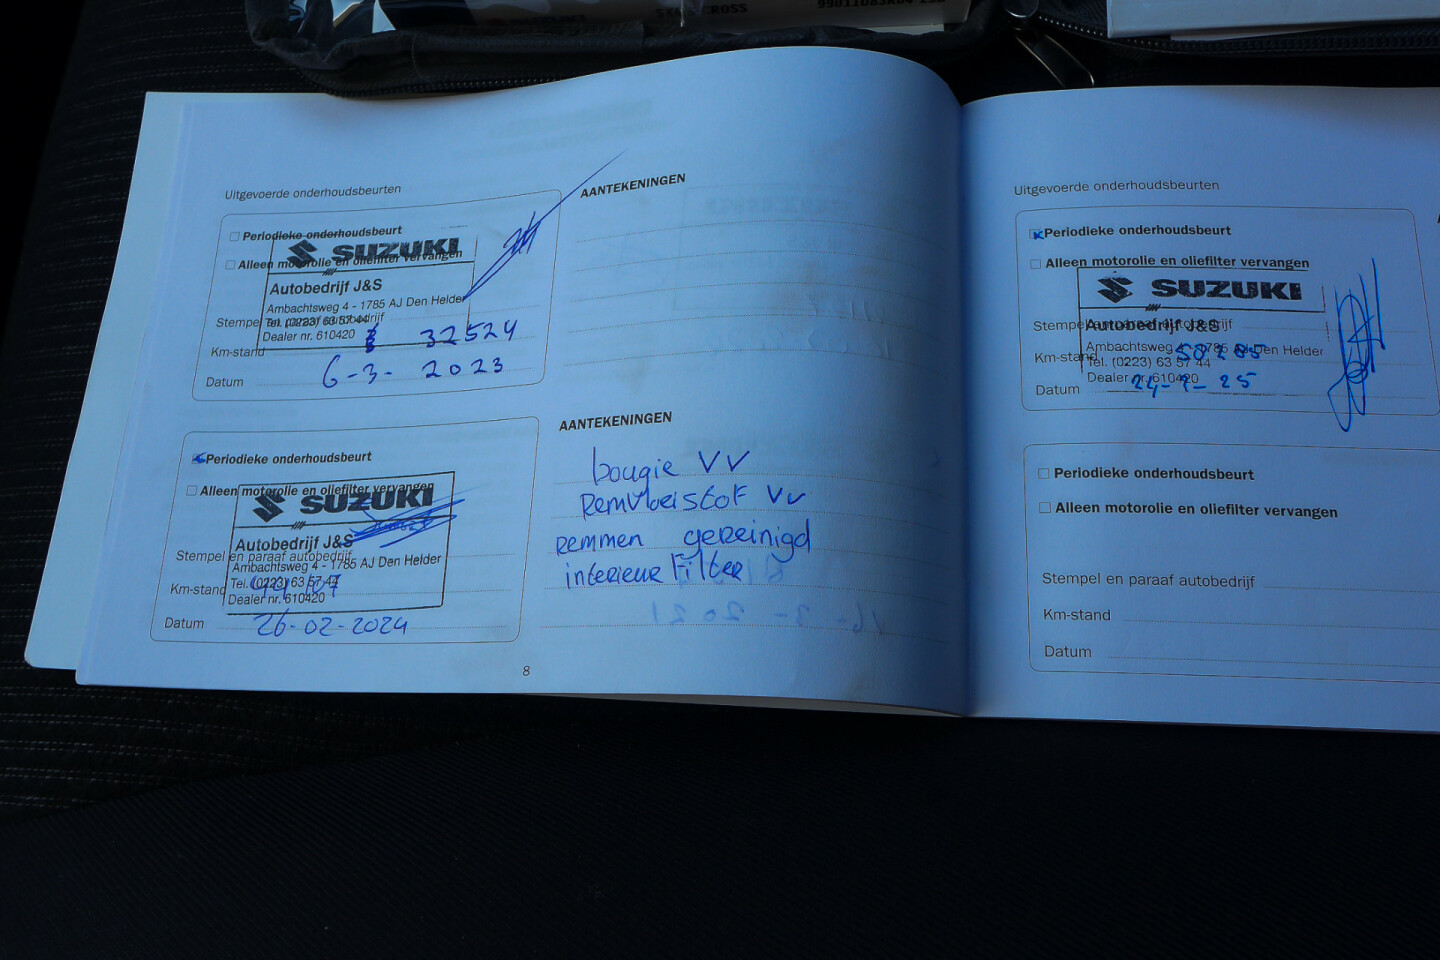 Uitgevoerde onderhoudsbeurten
Periodieke onderhoudsbeurt
SUZUKI
Alleen motorolie en oliefilter vervangen
Autobedrijf J&S
Ambachtsweg 4 - 1785 AJ Den Helder
Stempel en paraaf autobedrijf
Tel. (0223) 63 57 44
Dealer nr. 610420
Km-stand 32524
Datum 6-3-2023
AANTEKENINGEN
Periodieke onderhoudsbeurt
Alleen motorolie en oliefilter vervangen
SUZUKI
Autobedrijf J&S
Stempel en paraaf autobedrijf
Ambachtsweg 4 - 1785 AJ Den Helder
Tel. (0223) 63 57 44
Km-stand
Dealer nr. 610420
Datum 26-02-2024
AANTEKENINGEN
bougie VV
Remvloeistof VV
remmen gereinigd
interieur Filter
8
Uitgevoerde onderhoudsbeurten
Periodieke onderhoudsbeurt
Alleen motorolie en oliefilter vervangen
SUZUKI
Stempel en paraaf autobedrijf
Autobedrijf J&S
Ambachtsweg 4 - 1785 AJ Den Helder
Km-stand 50285
Tel. (0223) 63 57 44
Dealer nr. 610420
Datum 24-2-25
Periodieke onderhoudsbeurt
Alleen motorolie en oliefilter vervangen
Stempel en paraaf autobedrijf
Km-stand
Datum